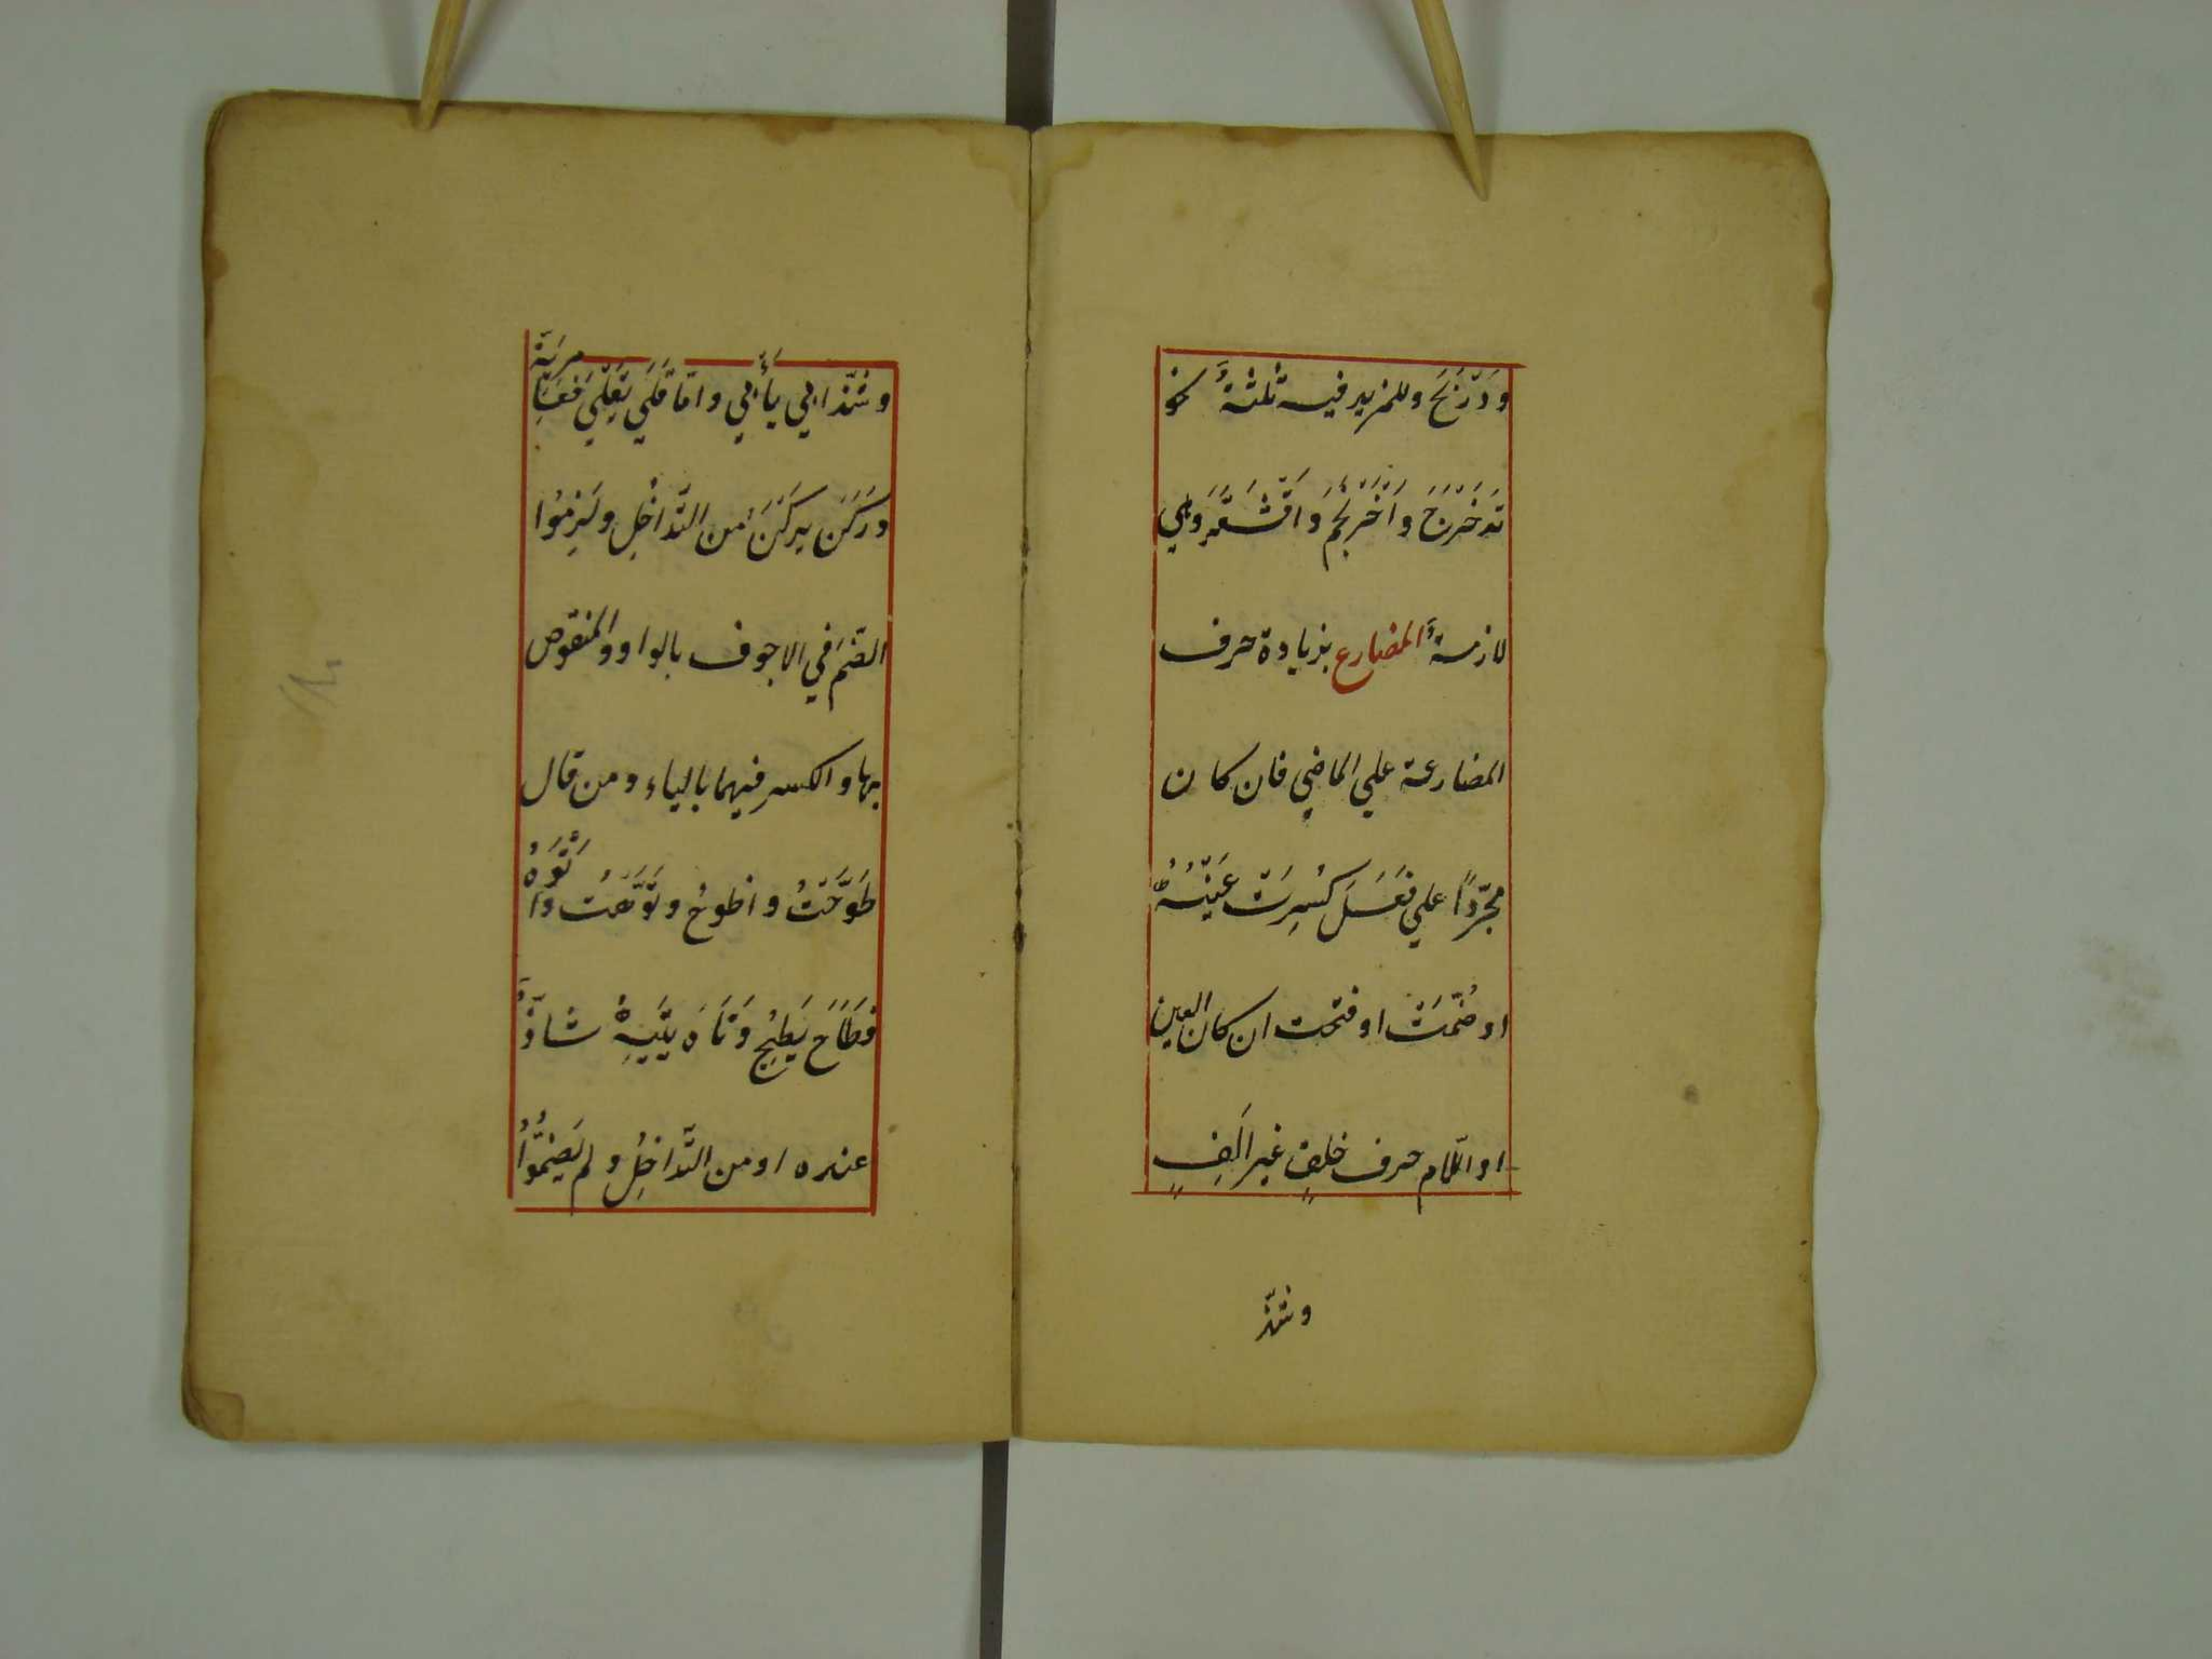 وَدَرْبَخَ وللمزيد فيه ثلثةٌ نحو
تَدَحْرَجَ وَاحْرَنْجَمَ وَاقْشَعَرَّ وهي
لازمةٌ المضارع بزيادة حرف
المضارعة علي الماضي فان كان
مجرّدًا علي فَعَلَ كُسِرَتْ عَيْنُهُ
او ضُمّتْ او فتحت ان كان العين
او اللّام حرف حلقٍ غير اَلِفٍ
وشذّ
وشذّ ابي يَأْبي وامّا قَلَي يَقْلَي فعَامِريّة
ورَكَنَ يركَنُ من التَّداخُلِ ولَزِمُوا
الضّمَ في الاجوف بالواو والمنقوص
بها والكسر فيهما بالياء ومن قال
طَوَّحْتُ واطوحُ وتَوَّهْتُ وَاَتْوَهُ
فطَاحَ يَطيحُ وَتَاهَ يَتِيهُ شاذٌّ
عنده او من التَّداخُلِ ولم يَضُمُّوا